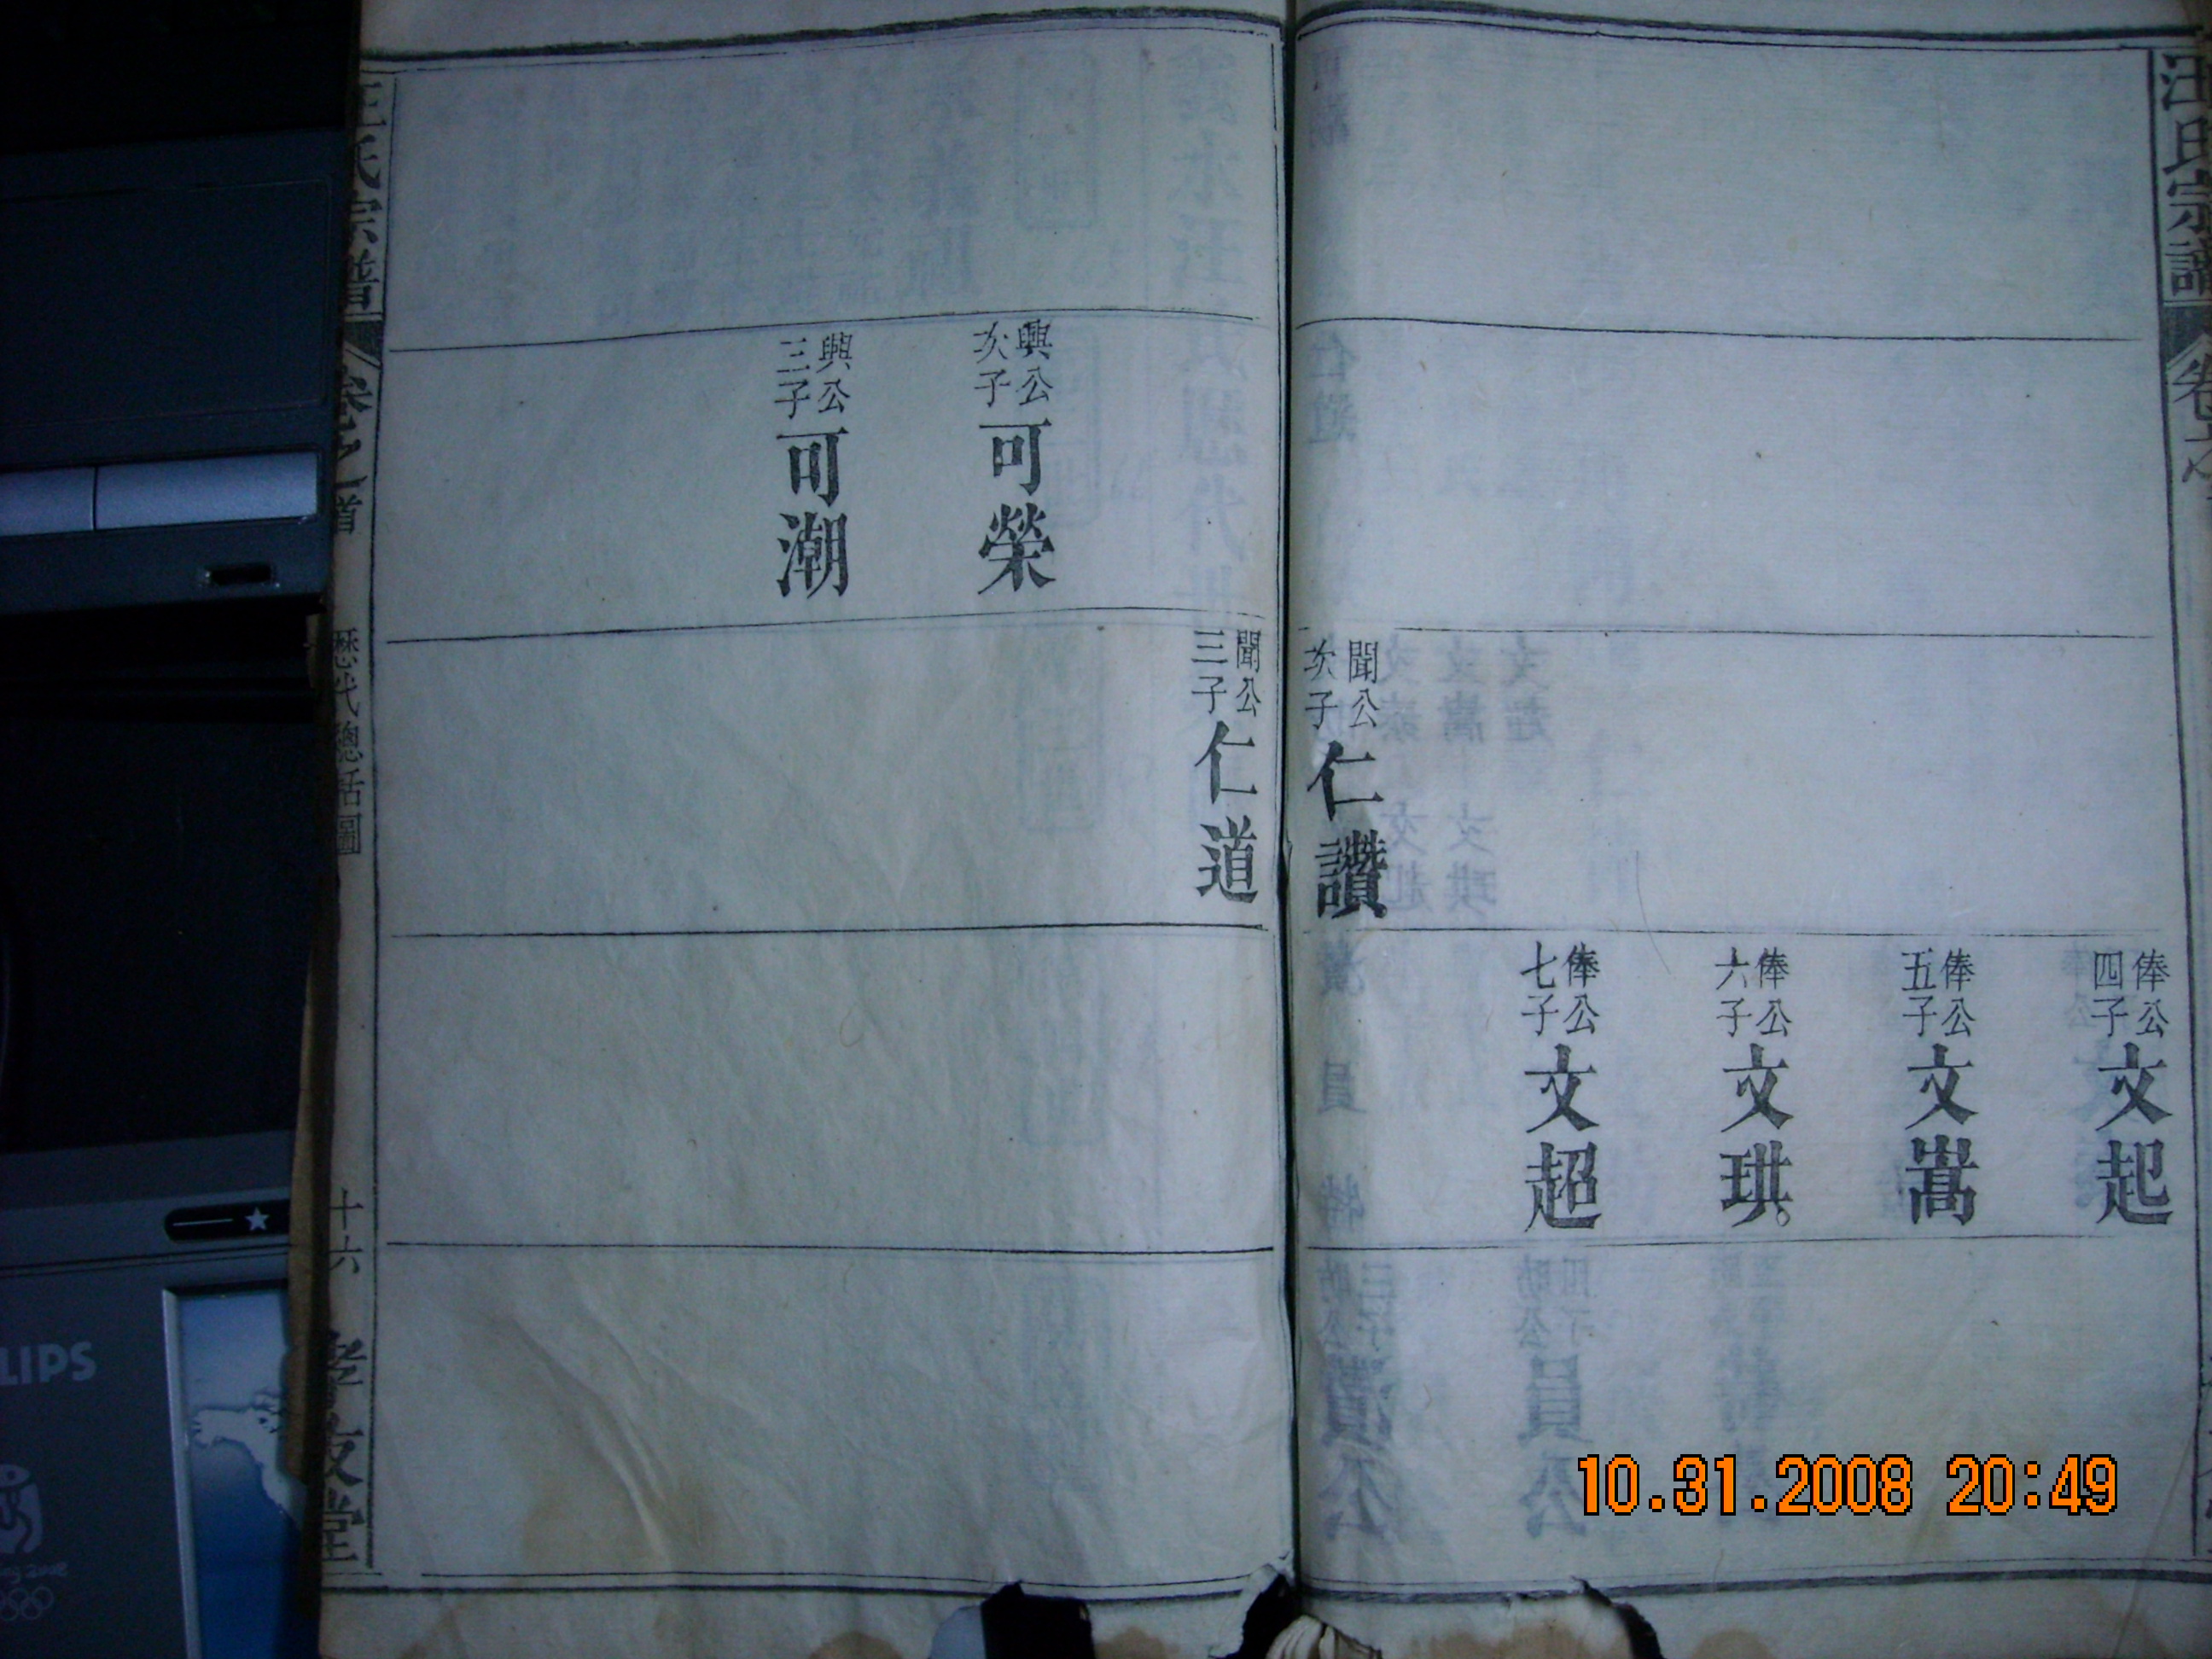 汪氏宗譜
卷之
俸公四子文起
俸公五子文嵩
俸公六子文珙
俸公七子文超
聞公次子仁讚
聞公三子仁道
興公次子可榮
興公三子可潮
汪氏宗譜
卷之首
歷代總括圖
十六
孝友堂
LIPS
10.31.2008 20:49